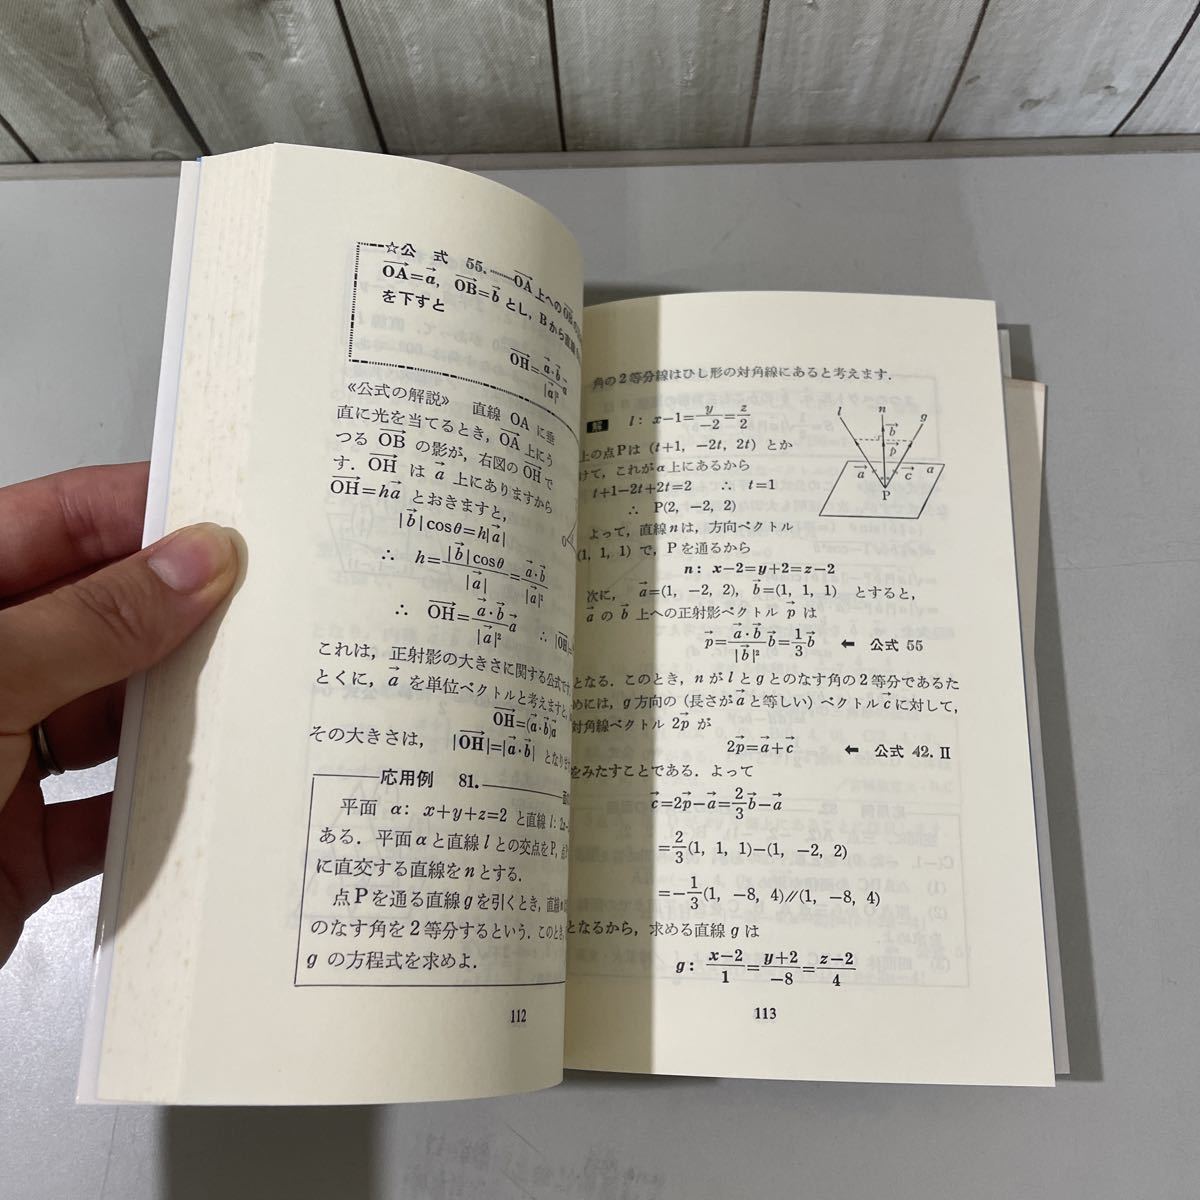 ☆公 式 55. OA→上へのOB→の
OA→=a→, OB→=b→とし,Bから直線
を下すと
OH→=a→·b→/|a→|² a→
《公式の解説》 直線 OA に垂
直に光を当てるとき,OA→上にう
つる OB→ の影が,右図の OH→ で
す.OH→ は a→ 上にありますから
OH→=ha→ とおきますと,
|b→|cosθ=h|a→|
∴ h=|b→|cosθ/|a→|=a→·b→/|a→|²
∴ OH→=a→·b→/|a→|² a→ ∴ |OH→|=
これは,正射影の大きさに関する公式です.
とくに,a→ を単位ベクトルと考えますと,
OH→=(a→·b→)a→
その大きさは, |OH→|=|a→·b→| となります
応用例 81.
平面 α: x+y+z=2 と直線 l: 2x-
ある.平面 α と直線 l との交点を P, 点
に直交する直線を n とする.
点 P を通る直線 g を引くとき,直線
のなす角を2等分するという.このとき,
g の方程式を求めよ.
112
角の2等分線はひし形の対角線にあると考えます.
解 l: x-1=y/-2=z/2
上の点Pは (t+1, -2t, 2t) とか
けて,これがα上にあるから
t+1-2t+2t=2 ∴ t=1
∴ P(2, -2, 2)
よって,直線 n は,方向ベクトル
(1, 1, 1) で,Pを通るから
n: x-2=y+2=z-2
次に, a→=(1, -2, 2), b→=(1, 1, 1) とすると,
a→ の b→ 上への正射影ベクトル p→ は
p→=a→·b→/|b→|² b→=1/3 b→ ← 公式 55
となる.このとき,n が l と g とのなす角の2等分であるた
めには,g 方向の(長さが a→ と等しい)ベクトル c→ に対して,
対角線ベクトル 2p→ が
2p→=a→+c→ ← 公式 42. II
をみたすことである.よって
c→=2p→-a→=2/3 b→-a→
=2/3(1, 1, 1)-(1, -2, 2)
=-1/3(1, -8, 4)//(1, -8, 4)
となるから,求める直線 g は
g: x-2/1=y+2/-8=z-2/4
l n g
b→
p→
a→ c→ α
P
113